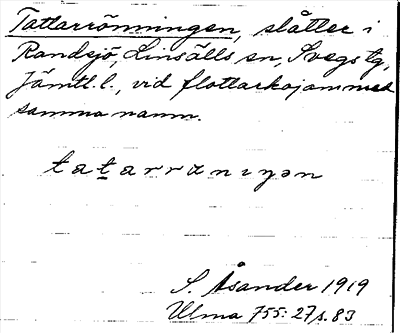 Tattarrönningen, slåtter i
Randsjö, Linsälls sn, Svegs tg,
Jämtl. l., vid flottarkojan med
samma namn.
tatarrœnıŋən
S. Åsander 1919
Ulma 755: 27 s. 83